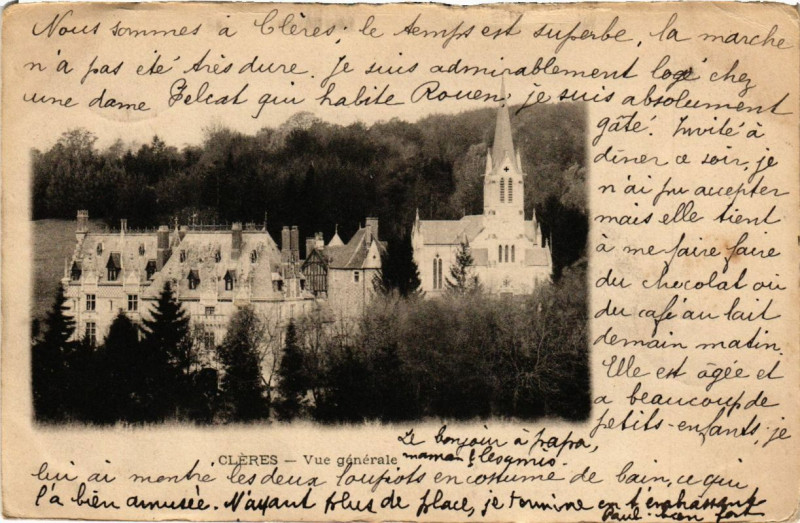 Nous sommes à Clères; le temps est superbe, la marche
n'a pas été très dure. Je suis admirablement logé chez
une dame Felcat qui habite Rouen, je suis absolument
gâté. Invité à
dîner ce soir, je
n'ai pu accepter
mais elle tient
à me faire faire
du chocolat ou
du café au lait
demain matin.
Elle est âgée et
a beaucoup de
petits-enfants, je
lui ai montré les deux loupiots en costume de bain, ce qui
l'a bien amusée. N'ayant plus de place, je termine en t'embrassant
bien fort
Paul.
Le bonjour à papa,
maman & les amis.
CLÈRES – Vue générale